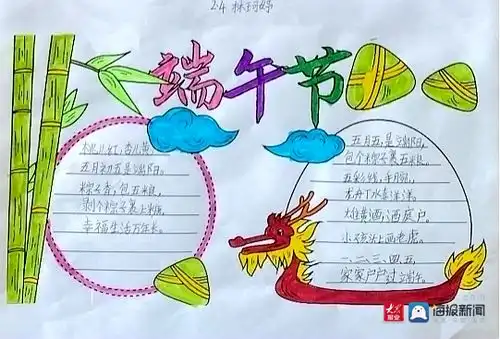 2.4 林珂婷
端午节
桃儿红,杏儿黄,
五月初五是端阳。
粽子香,包五粮,
剥个粽子裹上糖,
幸福生活万年长。
五月五,是端阳。
包个粽子裹五粮。
五彩线,手腕。
龙舟下水喜洋洋。
雄黄酒,洒庭户。
小孩头上画老虎。
一、二、三、四、五
家家户户过端午。
大众报业
海报新闻